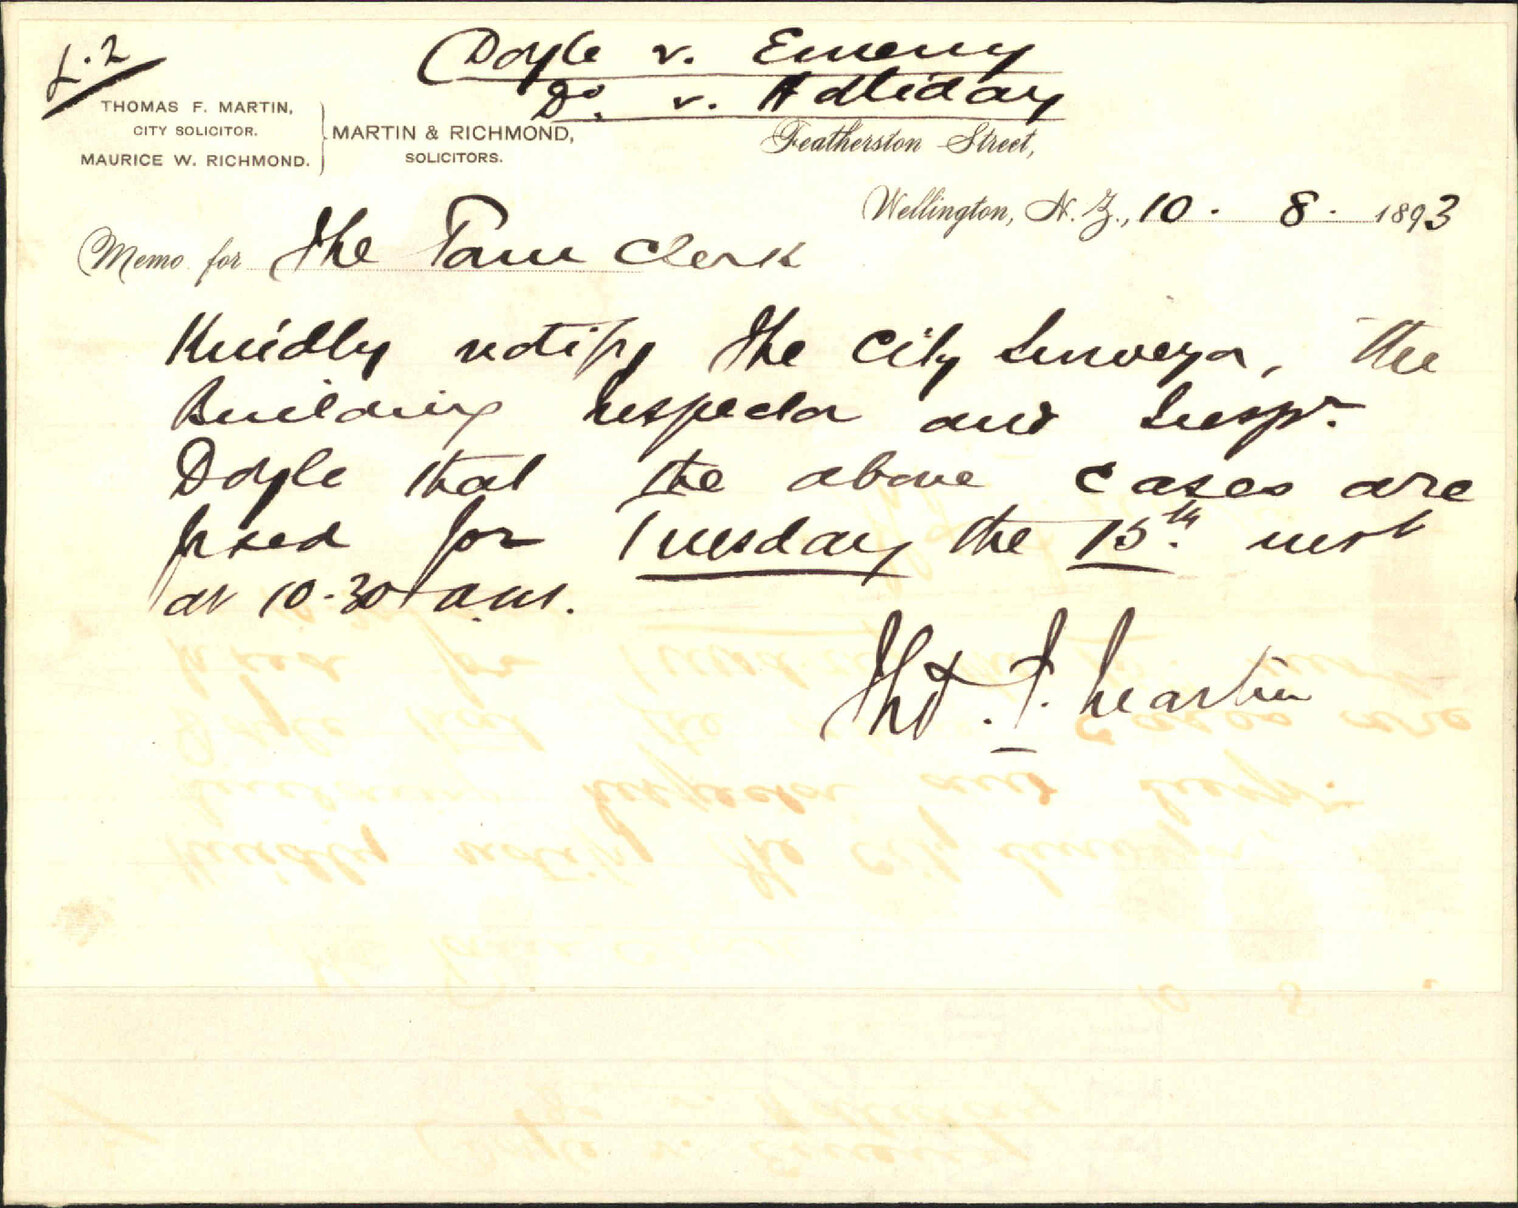 L.2
Doyle v. Emeny
Do. v. Holliday
THOMAS F. MARTIN,
CITY SOLICITOR.
MAURICE W. RICHMOND.
MARTIN & RICHMOND,
SOLICITORS.
Featherston Street,
Wellington, N.Z., 10 . 8 . 1893
Memo for The Town Clerk
Kindly notify the City Surveyor, the
Building Inspector and Inspr.
Doyle that the above cases are
fixed for Tuesday the 15th. inst
at 10.30 a.m.
Thos. F. Martin